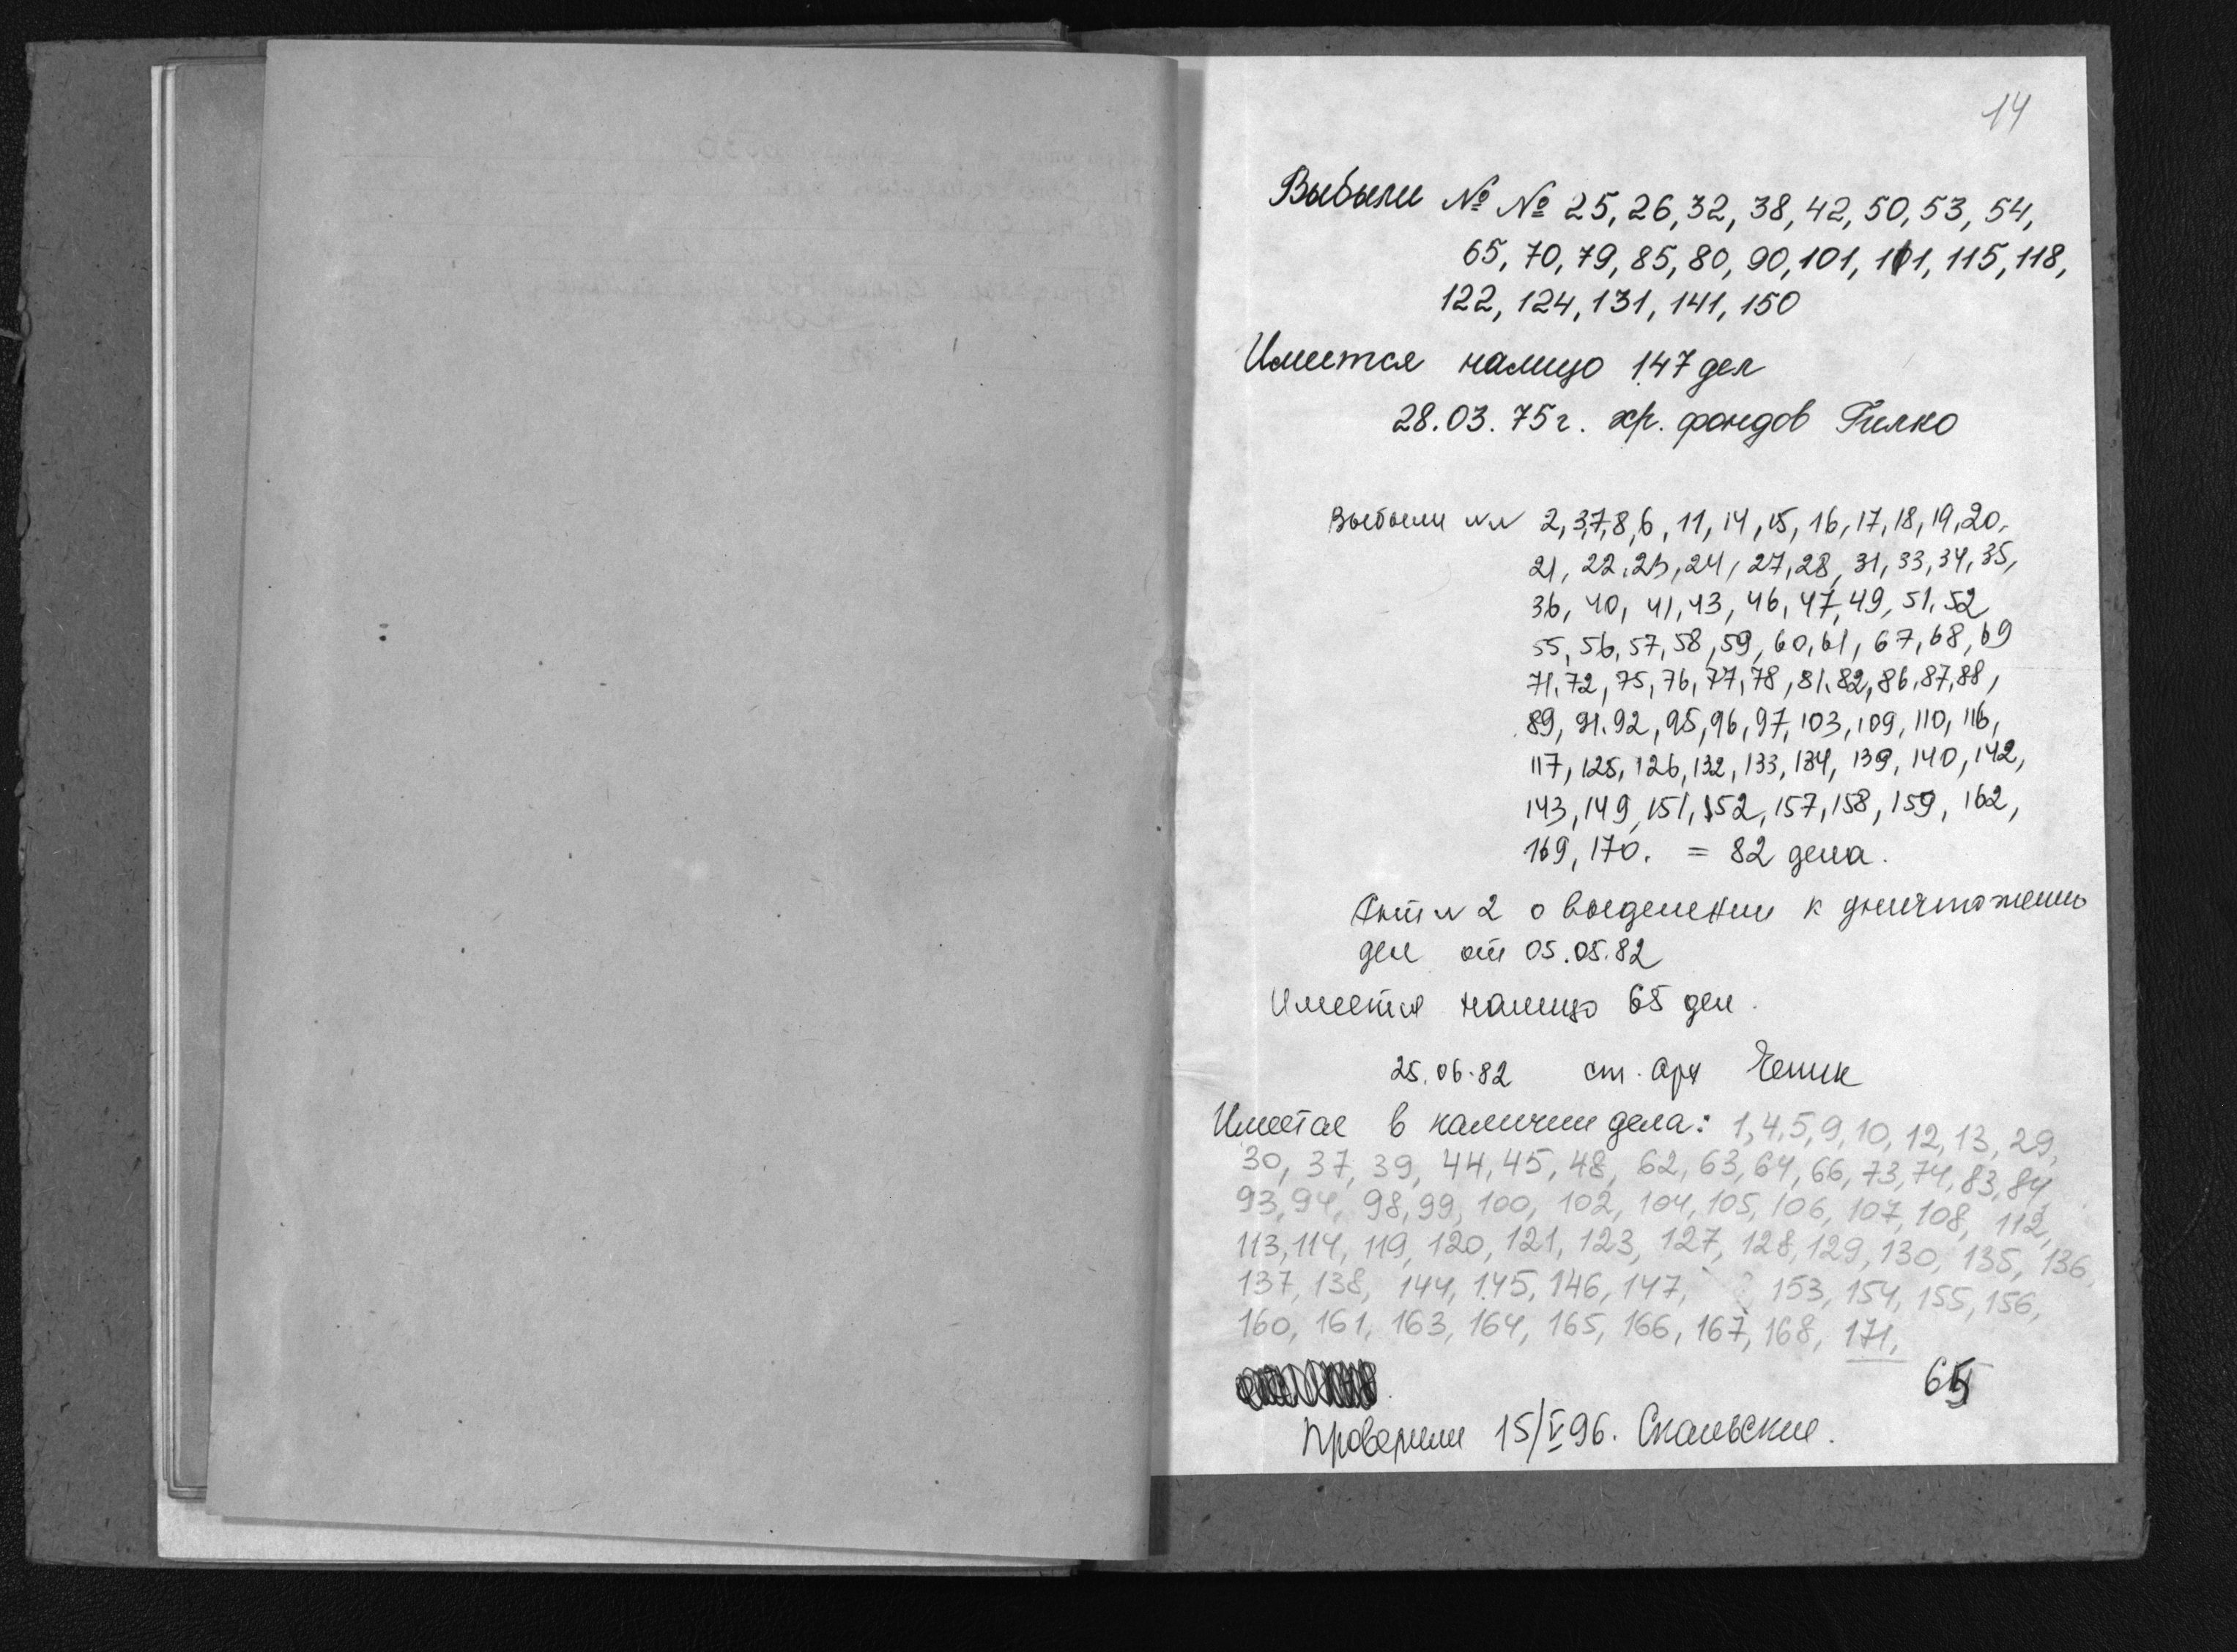 14
Выбыли № № 25, 26, 32, 38, 42, 50, 53, 54,
65, 70, 79, 85, 80, 90, 101, 111, 115, 118,
122, 124, 131, 141, 150
Имеется налицо 147 дел
28.03.75г. хр. фондов Гилко
Выбыли №№ 2, 3, 7, 8, 6, 11, 14, 15, 16, 17, 18, 19, 20,
21, 22, 23, 24, 27, 28, 31, 33, 34, 35,
36, 40, 41, 43, 46, 47, 49, 51, 52
55, 56, 57, 58, 59, 60, 61, 67, 68, 69
71, 72, 75, 76, 77, 78, 81, 82, 86, 87, 88,
89, 91, 92, 95, 96, 97, 103, 109, 110, 116,
117, 125, 126, 132, 133, 134, 139, 140, 142,
143, 149, 151, 152, 157, 158, 159, 162,
169, 170. = 82 дела.
Акт № 2 о выделении к уничтожению
дел от 05.05.82
Имеется налицо 65 дел.
25.06.82 ст. арх
Имеется в наличии дела: 1, 4, 5, 9, 10, 12, 13, 29,
30, 37, 39, 44, 45, 48, 62, 63, 64, 66, 73, 74, 83, 84,
93, 94, 98, 99, 100, 102, 104, 105, 106, 107, 108, 112,
113, 114, 119, 120, 121, 123, 127, 128, 129, 130, 135, 136,
137, 138, 144, 145, 146, 147, 153, 154, 155, 156,
160, 161, 163, 164, 165, 166, 167, 168, 171.
65
Проверили 15/V 96.